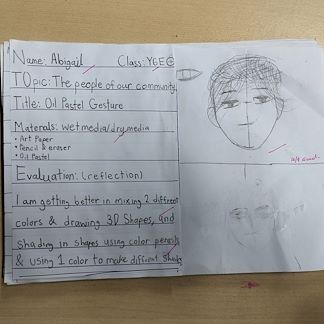 Name: Abigail Class: Y6E©
TOpic: The people of our community
Title: Oil Pastel Gesture
Materals: wet media/dry media
• Art Paper
• Pencil & eraser
• Oil Pastel
Evaluation: (reflection)
I am getting better in mixing 2 different
colors & drawing 3D Shapes, and
shading in shapes using color pencils
& using 1 color to make different shades